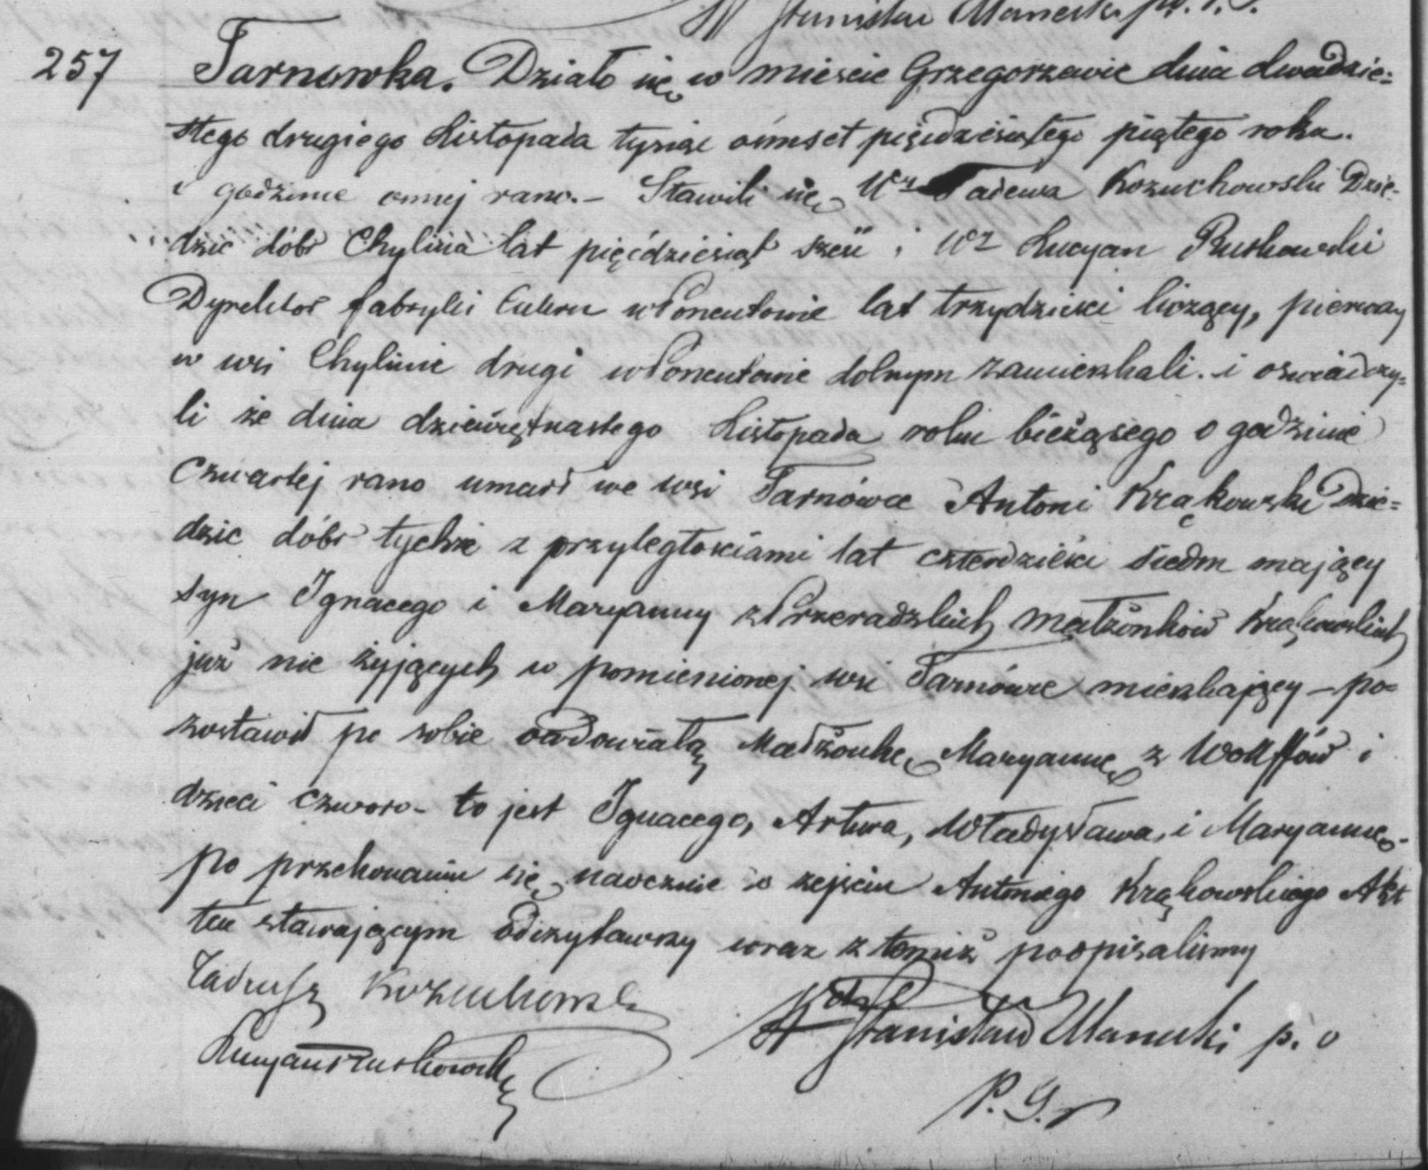 Stanisław
257 Tarnówka. Działo się w mieście Grzegorzewie dnia dwudzie=
stego drugiego Listopada tysiąc ośmset pięćdziesiątego piątego roku.
o godzinie ósmej rano.– Stawili się Wny Tadeusz Kożuchowski Dzie-
dzic dóbr Chylina lat pięćdziesiąt sześć i Wny Lucyan Rutkowski
Dyrektor fabryki Cukru w Ponentowie lat trzydzieści liczący, pierwszy
w wsi Chylinie drugi w Ponentowie dolnym zamieszkali. i oświadczy=
li że dnia dziewiętnastego Listopada roku bieżącego o godzinie
czwartej rano umarł we wsi Tarnówce Antoni Krąkowski Dzie=
dzic dóbr tychże z przyległościami lat czterdzieści siedm mający
syn Ignacego i Maryanny z Przeradzkich małżonków Krąkowskich
już nie żyjących w pomienionej wsi Tarnówce mieszkający – po=
zostawił po sobie owdowiałą Małżonkę Maryannę z Wolffów i
dzieci czworo – to jest Ignacego, Artura, Władysława, i Maryannę.
po przekonaniu się naocznie o zejściu Antoniego Krąkowskiego Akt
ten stawającym odczytawszy wraz z temiż podpisaliśmy
Tadeusz Kożuchowski
X Stanisław p. o
Lucyan Rutkowski
P. G.